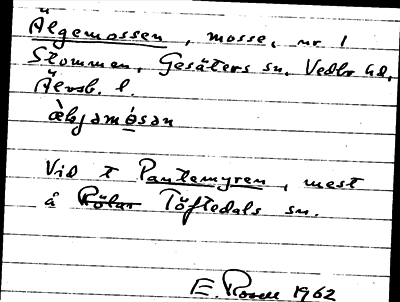 Älgemossen, mosse, nr 1
Stommen, Gesäters sn, Vedbo hd,
Älvsb. l.
àlɡjəmósən
Vid t Pantemyren, mest
å Rölar Töftedals sn.
E. Rosell 1962